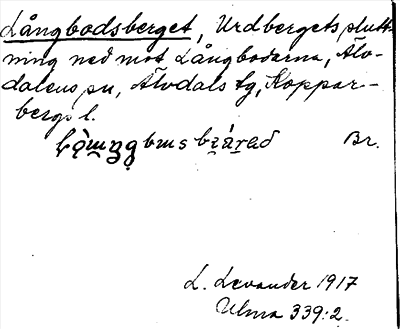 Långbodsberget, Urdbergets slutt-
ning ned mot Långbodarna, Älv-
dalens sn, Älvdals tg, Koppar-
bergs l.
Br.
L. Levander 1917
Ulma 339:2.